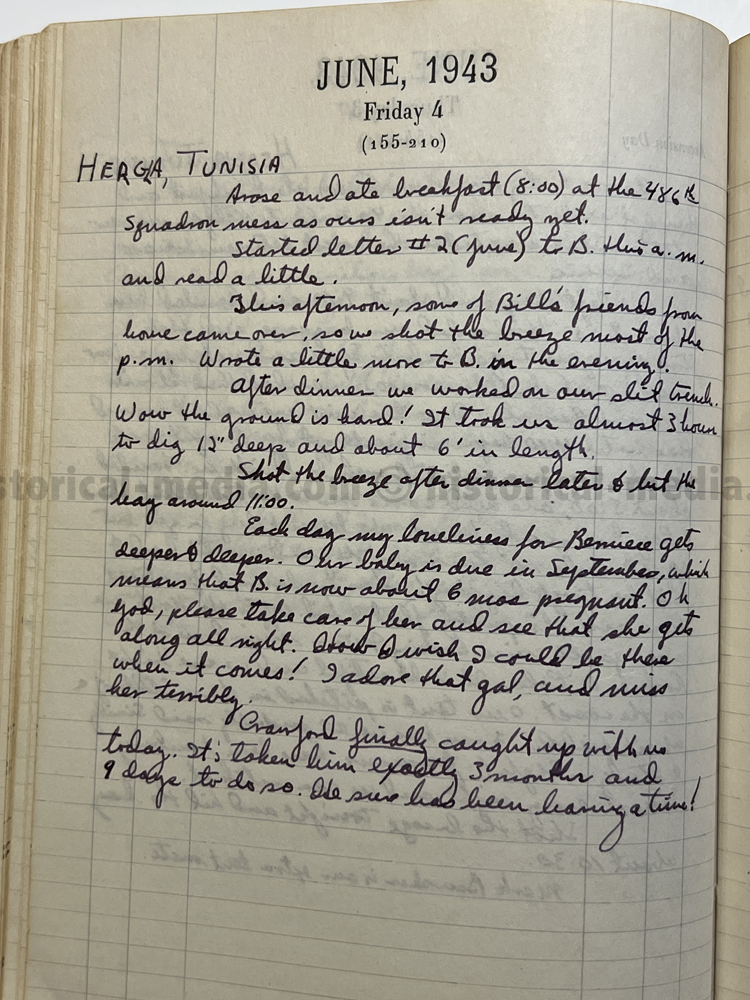 JUNE, 1943
Friday 4
(155-210)
HERGLA, TUNISIA
Arose and ate breakfast (8:00) at the 486th
squadron mess as ours isn't ready yet.
Started letter #2 (June) to B. this a.m.
and read a little.
This afternoon, some of Bill's friends from
home came over, so we shot the breeze most of the
p.m. Wrote a little more to B. in the evening.
After dinner we worked on our slit trench.
Wow the ground is hard! It took us almost 3 hours
to dig 12" deep and about 6' in length.
Shot the breeze after dinner later & hit the
hay around 11:00.
Each day my loneliness for Berniece gets
deeper & deeper. Our baby is due in September, which
means that B. is now about 6 mos pregnant. Oh
god, please take care of her and see that she gets
along all right. How I wish I could be there
when it comes! I adore that gal, and miss
her terribly.
Crawford finally caught up with us
today. It's taken him exactly 3 months and
9 days to do so. He sure has been having a time!
historical-media.com © historical-media